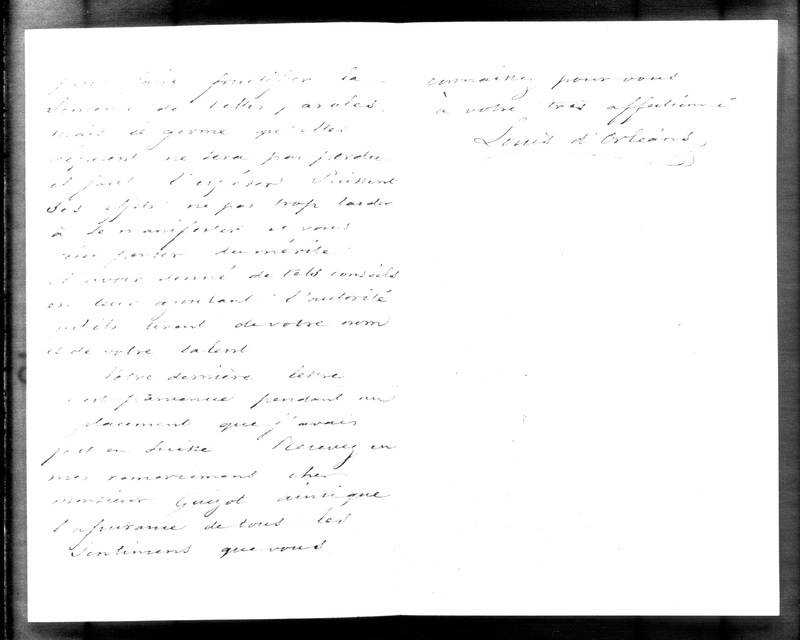 pour faire fructifier la
semence de telles paroles.
Mais le germe qu'elles
déposent ne sera pas perdu
il faut l'espérer. Puissent
ses effets ne pas trop tarder
à se manifester et vous
du mérite
d'avoir donné de tels conseils
en leur ajoutant l'autorité
qu'ils tirent de votre nom
et de votre talent
Votre dernière lettre
m'est parvenue pendant un
placement que j'avais
fait en Suisse Recevez en
mes remerciemens cher
monsieur Guizot ainsi que
l'assurance de tous les
sentimens que vous
connaissez pour vous
à votre très affectionné
Louis d'Orléans,